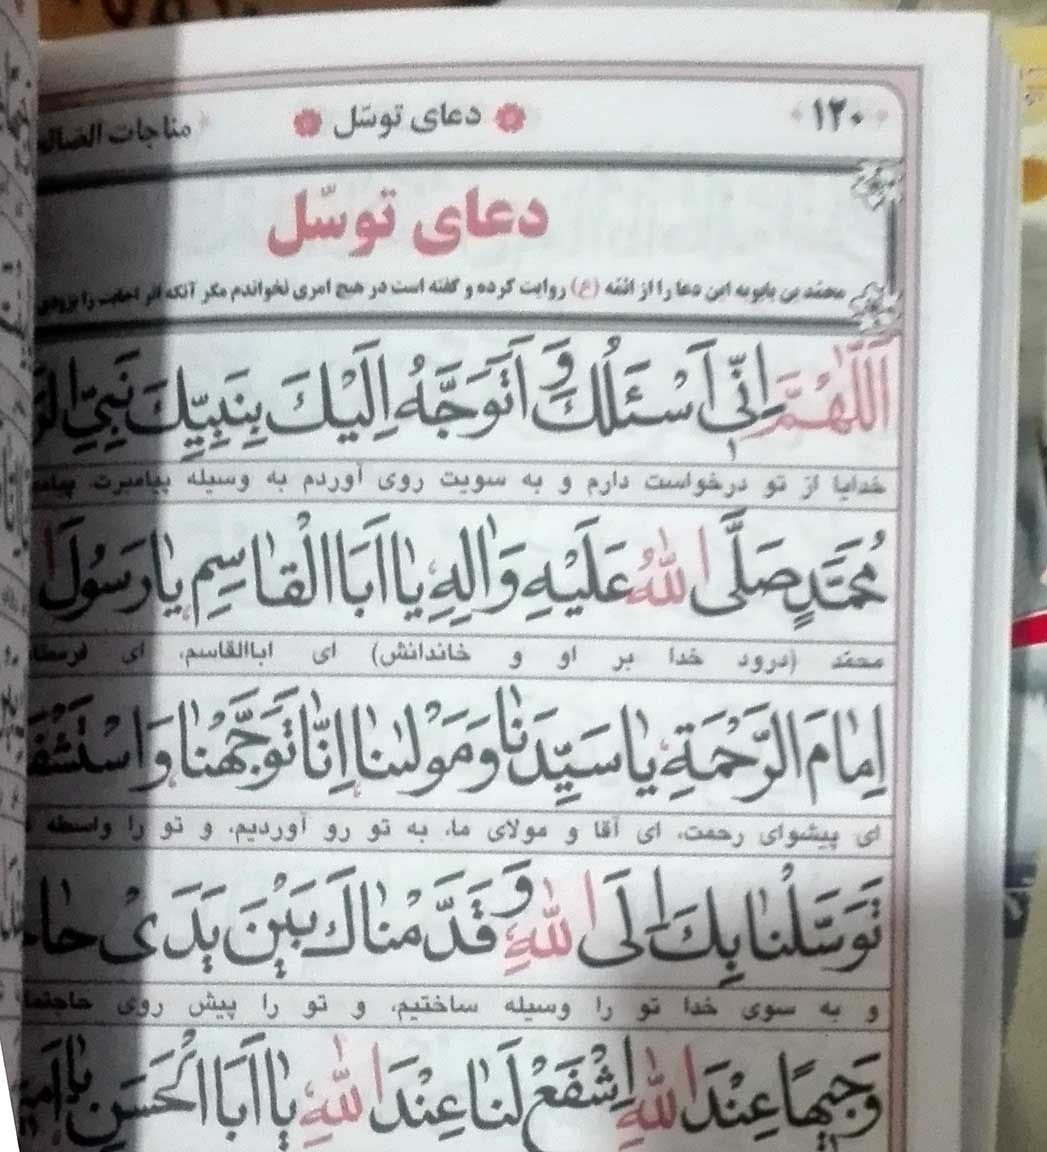 ۱۲۰ دعای توسّل مناجات
دعای توسّل
محمّد بن بابویه این دعا را از ائمّه (ع) روایت کرده و گفته است در هیچ امری نخواندم مگر آنکه اثر اجابت را بزودی
اَللّٰهُمَّ اِنّی اَسْئَلُكَ وَ اَتَوَجَّهُ اِلَیْكَ بِنَبِیِّكَ نَبِیِّ
خدایا از تو درخواست دارم و به سویت روی آوردم به وسیله پیامبرت
مُحَمَّدٍ صَلَّی اللهُ عَلَیْهِ وَ الِهِ یا اَبَا الْقاسِمِ یا رَسُولَ
محمّد (درود خدا بر او و خاندانش) ای اباالقاسم، ای
اِمامَ الرَّحْمَةِ یا سَیِّدَنا وَ مَوْلٰینا اِنّا تَوَجَّهْنا
ای پیشوای رحمت، ای آقا و مولای ما، به تو رو آوردیم، و تو را واسطه
تَوَسَّلْنا بِكَ اِلَی اللهِ وَ قَدَّمْناكَ بَیْنَ یَدَیْ
و به سوی خدا تو را وسیله ساختیم، و تو را پیش روی
وَجیهًا عِنْدَ اللهِ اِشْفَعْ لَنا عِنْدَ اللهِ یا اَبَا الْحَسَنِ یا